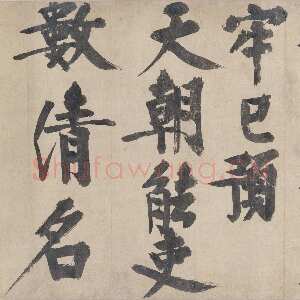 牢已預
天朝能吏
數清名
Shufawang.cn